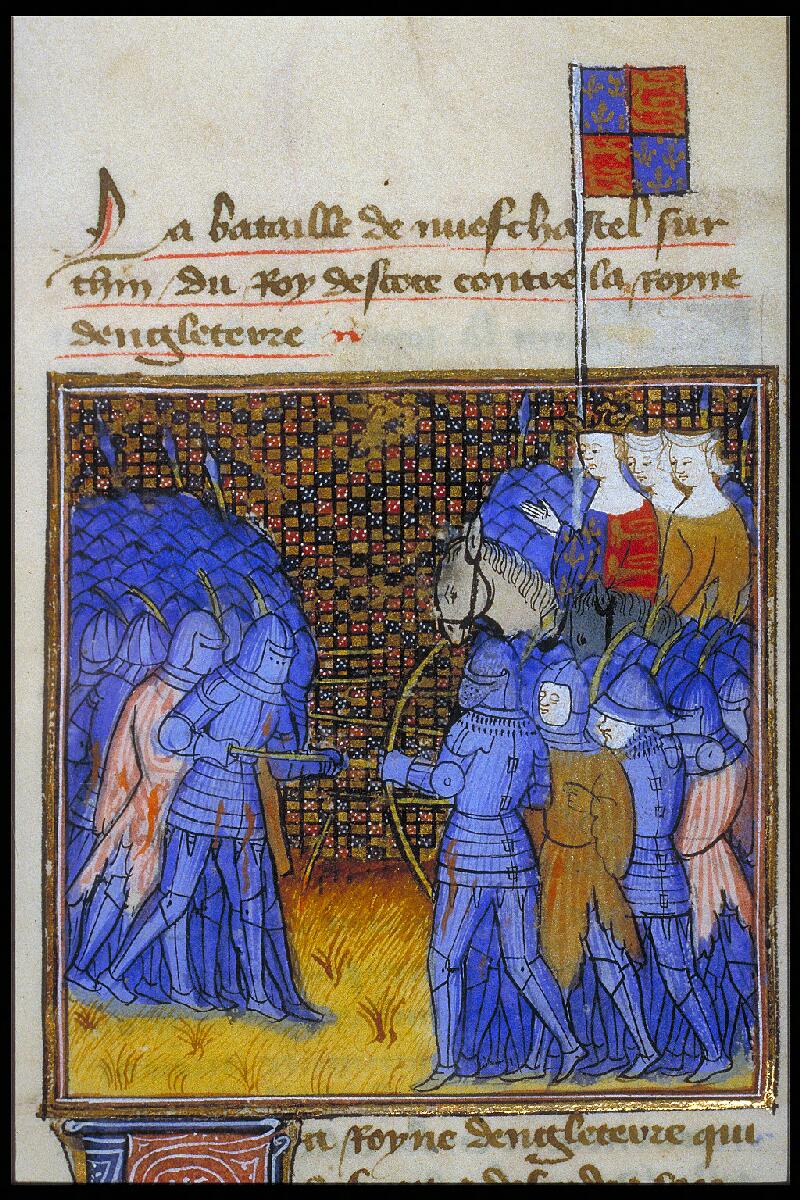 La bataille de nuefchastel sur
thin du Roy descoce contre la royne
dengleterre
la Royne dengleterre qui